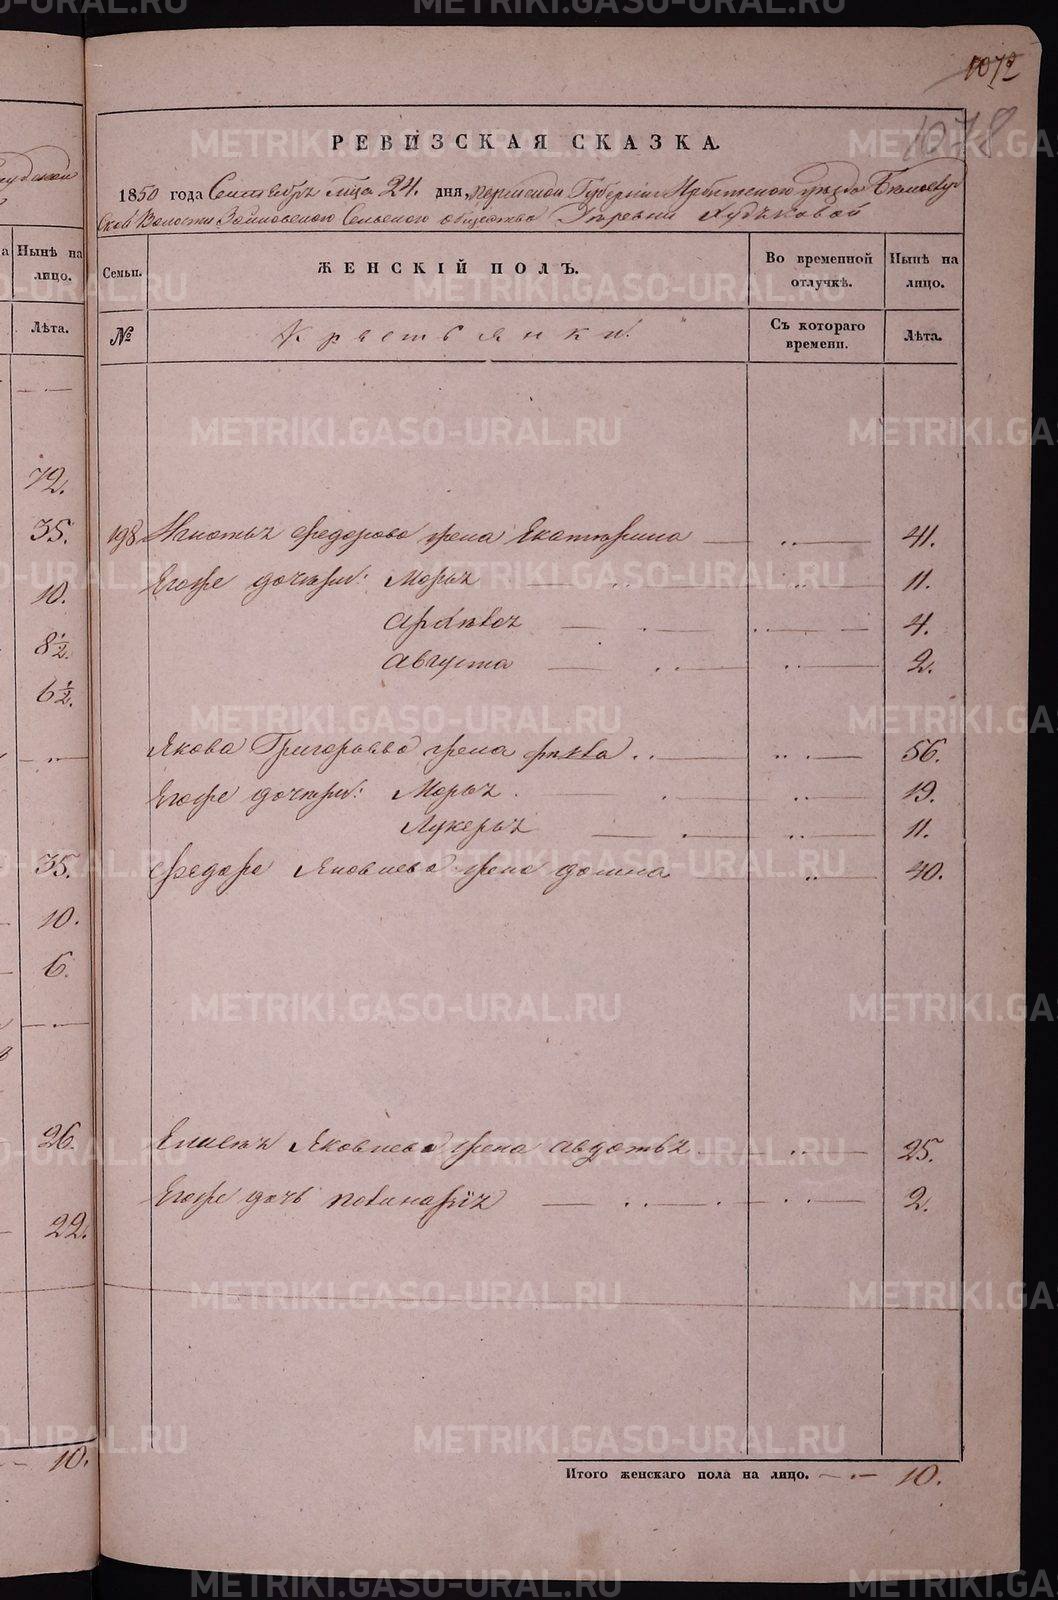 1078
1078
РЕВИЗСКАЯ СКАЗКА.
1850 года Сентября мца 24. дня, Пермской Губернии Ирбитского уезда
ской Волости Сельского общества Деревни Худяковой
Нынѣ на лицо.
Лѣта.
Семьи.
ЖЕНСКІЙ ПОЛЪ.
Во временной отлучкѣ.
Нынѣ на лицо.
№
Крестьянки
Съ котораго времени.
Лѣта.
72.
35.
10.
8 1/2.
6 1/2.
35.
10.
6.
26.
22.
10.
198 Федорова жена Екатерина 41.
Егоже дочери: Марья 11.
4.
Августа 2.
Якова Григорьева жена 56.
Егоже дочери: Марья 19.
Лукерья 11.
Федора Яковлева жена Домна 40.
Елисея Яковлева жена Авдотья 25.
Егоже дочь 2.
Итого женскаго пола на лицо. 10.
METRIKI.GASO-URAL.RU